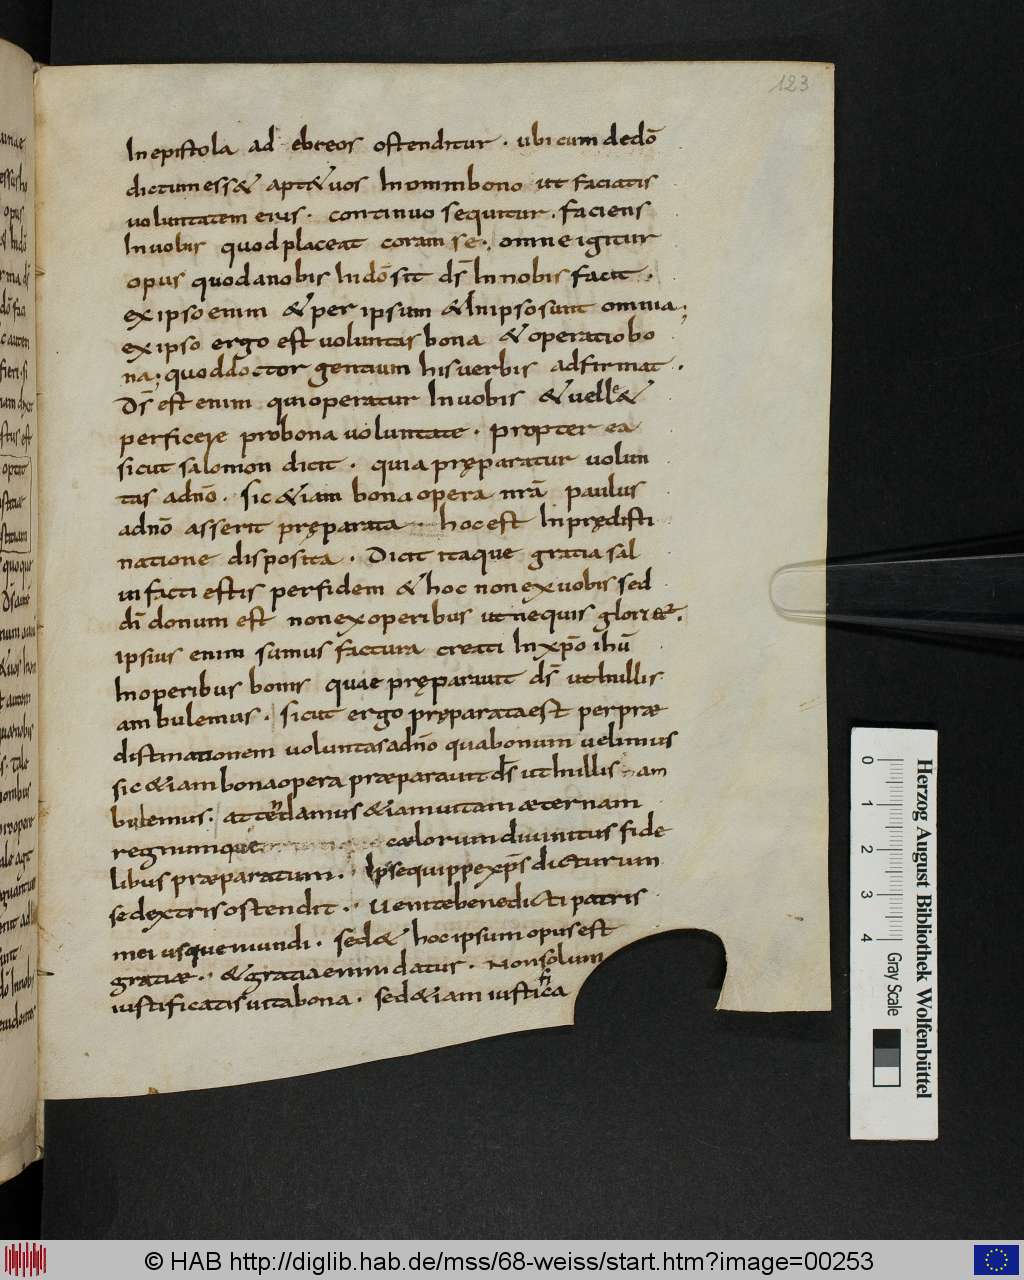 123
In epistola ad ebreos ostenditur · ubi cum dedō
dictum ess& apt&uos In omni bono ut faciatis
uoluntatem eius · continuo sequitur · faciens
Inuobis quod placeat coram se · omne igitur
opus quod anobis In dō sit ds̄ In nobis facit ·
ex ipso enim & per ipsum & In ipso sunt omnia;
ex ipso ergo est uoluntas bona & operatio bo
na; quod doctor gentium his uerbis adfirmat ·
Ds̄ est enim qui operatur In uobis & uelle &
perficere pro bona uoluntate · propter ea
sicut salomon dicit · quia pręparatur uolun
tas adnō · sic &iam bona opera nrā paulus
adnō asserit pręparata hoc est In prędisti
natione disposita · Dicit itaque gratia sal
ui facti estis per fidem & hoc non ex uobis sed
dī donum est non ex operibus ut ne quis glorietur ·
ipsius enim sumus factura creati In xpō ihū
In operibus bonis quae pręparauit ds̄ ut In illis
ambulemus · sicut ergo pręparata est per præ
distinationem uoluntas adnō qua bonum uelimus
sic &iam bona opera præparauit ds̄ ut In illis am
bulemus · attendamus &iam uitam æternam
regnumque cælorum diuinitus fide
libus præparatum · Ipse quippe xp̄s dicturum
se dextris ostendit · Uenite benedicti patris
mei usque mundi · sed & hoc ipsum opus est
gratiæ · & gratia enim datur · Non solum
iustificatis uita bona · sed &iam iustifica
Herzog August Bibliothek Wolfenbüttel
0 1 2 3 4 Gray Scale
© HAB http://diglib.hab.de/mss/68-weiss/start.htm?image=00253